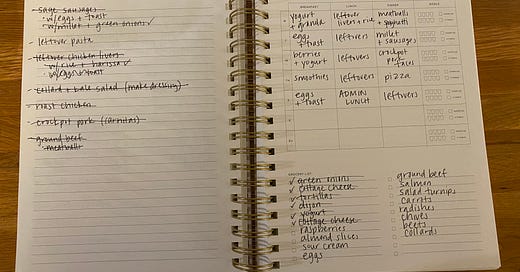 sage sausages
w/eggs + toast
w/millet + green onions ✓
leftover pasta
leftover chicken livers
w/rice + harissa ✓
w/eggs + toast
collard + kale salad (make dressing)
roast chicken
crockpot pork (carnitas)
ground beef
meatballs
BREAKFAST LUNCH DINNER
yogurt + granola
leftover livers + rice
meatballs + spaghetti
eggs + toast
leftovers
millet + sausages
berries + yogurt
leftovers
crockpot pork tacos
smoothies
leftovers
pizza
eggs + toast
ADMIN LUNCH
leftovers
GROCERY LIST
✓ green onions
✓ cottage cheese
✓ tortillas
✓ dijon
✓ yogurt
✓ cottage cheese
raspberries
almond slices
sour cream
eggs
ground beef
salmon
salad turnips
carrots
radishes
chives
beets
collards